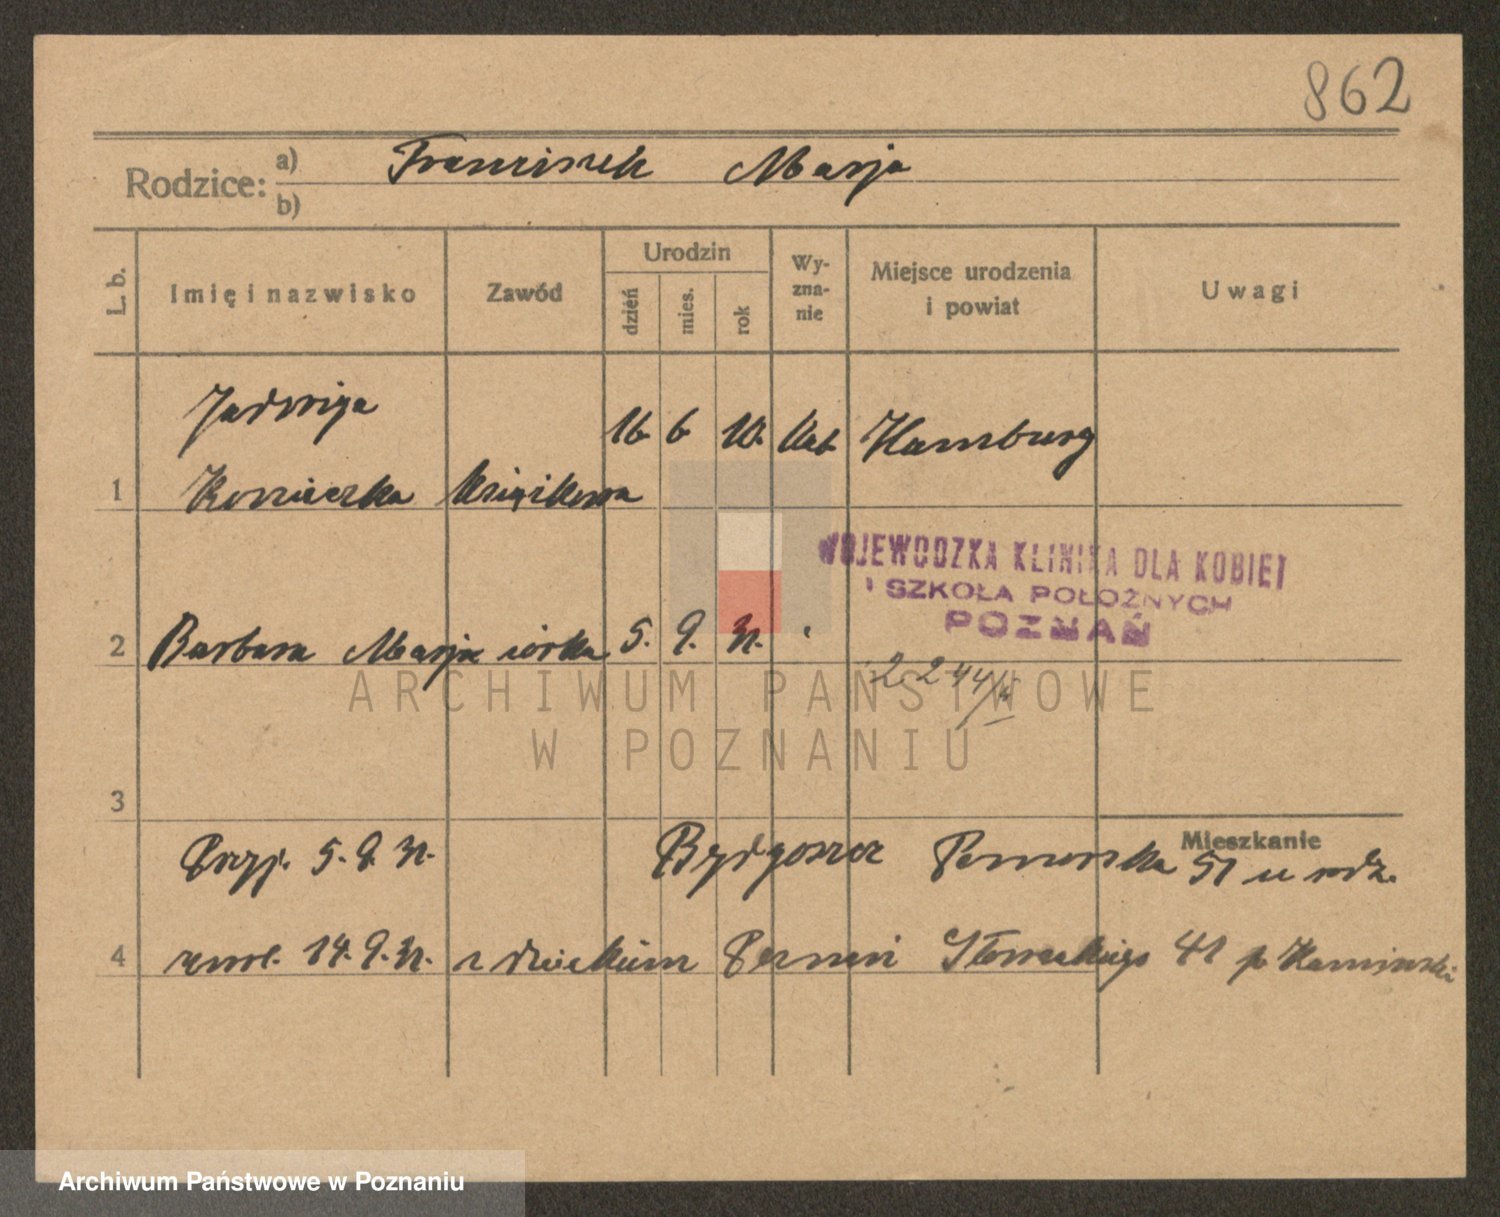 862
Rodzice: a) Franciszek Marja
b)
L. b. Imię i nazwisko Zawód Urodzin dzień mies. rok Wy-zna-nie Miejsce urodzenia i powiat Uwagi
Jadwiga
16 6 10. kat. Hamburg
1 Konieczka
2 Barbara Marja córka 5. 9. 31.
WOJEWODZKA KLINIKA DLA KOBIET
I SZKOŁA POŁOŻNYCH
POZNAŃ
2244
ARCHIWUM PAŃSTWOWE
W POZNANIU
3
Mieszkanie
Przyj. 5. 9. 31. Bydgoszcz Pomorska 51 u rodz.
4 zwol. 14. 9. 31. z dzieckiem Poznań Słowackiego 41 p Kamiński
Archiwum Państwowe w Poznaniu